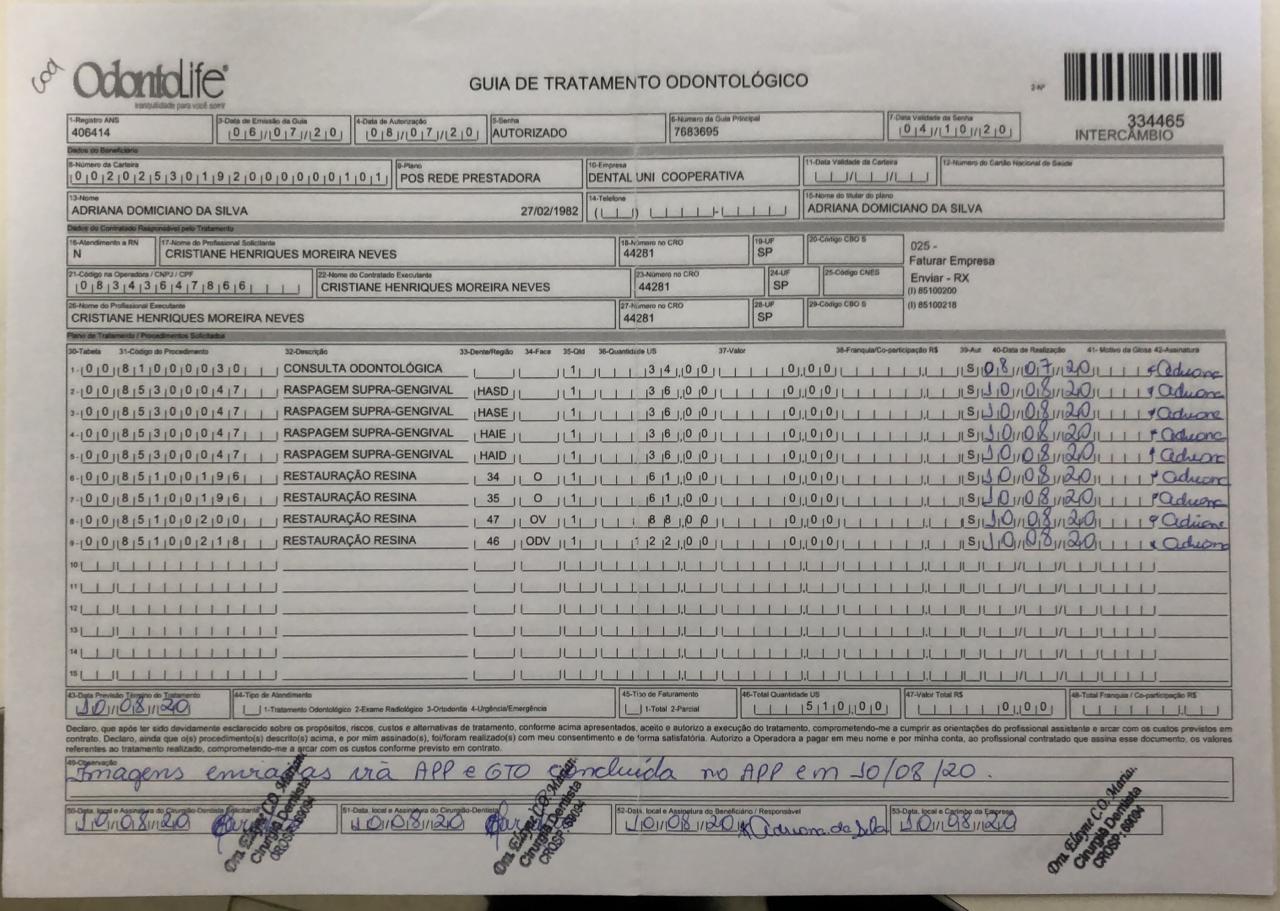 GOQ
OdontoLife®
tranquilidade para você sorrir
GUIA DE TRATAMENTO ODONTOLÓGICO
2-Nº
334465
INTERCÂMBIO
1-Registro ANS 3-Data de Emissão da Guia 4-Data de Autorização 5-Senha 6-Número da Guia Principal 7-Data Validade da Senha
406414 06/07/20 08/07/20 AUTORIZADO 7683695 04/10/20
Dados do Beneficiário
8-Número da Carteira 9-Plano 10-Empresa 11-Data Validade da Carteira 12-Número do Cartão Nacional de Saúde
00202530192000000101 POS REDE PRESTADORA DENTAL UNI COOPERATIVA
13-Nome 14-Telefone 15-Nome do titular do plano
ADRIANA DOMICIANO DA SILVA 27/02/1982 ADRIANA DOMICIANO DA SILVA
Dados do Contratado Responsável pelo Tratamento
16-Atendimento a RN 17-Nome do Profissional Solicitante 18-Número no CRO 19-UF 20-Código CBO S
N CRISTIANE HENRIQUES MOREIRA NEVES 44281 SP
025 -
Faturar Empresa
Enviar - RX
(I) 85100200
(I) 85100218
21-Código na Operadora / CNPJ / CPF 22-Nome do Contratado Executante 23-Número no CRO 24-UF 25-Código CNES
08343647866 CRISTIANE HENRIQUES MOREIRA NEVES 44281 SP
26-Nome do Profissional Executante 27-Número no CRO 28-UF 29-Código CBO S
CRISTIANE HENRIQUES MOREIRA NEVES 44281 SP
Plano de Tratamento / Procedimentos Solicitados
30-Tabela 31-Código do Procedimento 32-Descrição 33-Dente/Região 34-Face 35-Qtd 36-Quantidade US 37-Valor 38-Franquia/Co-participação R$ 39-Aut 40-Data de Realização 41- Motivo da Glosa 42-Assinatura
1- 00 81000030 CONSULTA ODONTOLÓGICA 1 34,00 0,00 S 08/07/20 Adriana
2- 00 85300047 RASPAGEM SUPRA-GENGIVAL HASD 1 36,00 0,00 S 10/08/20 Adriana
3- 00 85300047 RASPAGEM SUPRA-GENGIVAL HASE 1 36,00 0,00 S 10/08/20 Adriana
4- 00 85300047 RASPAGEM SUPRA-GENGIVAL HAIE 1 36,00 0,00 S 10/08/20 Adriana
5- 00 85300047 RASPAGEM SUPRA-GENGIVAL HAID 1 36,00 0,00 S 10/08/20 Adriana
6- 00 85100196 RESTAURAÇÃO RESINA 34 O 1 61,00 0,00 S 10/08/20 Adriana
7- 00 85100196 RESTAURAÇÃO RESINA 35 O 1 61,00 0,00 S 10/08/20 Adriana
8- 00 85100200 RESTAURAÇÃO RESINA 47 OV 1 88,00 0,00 S 10/08/20 Adriana
9- 00 85100218 RESTAURAÇÃO RESINA 46 ODV 1 122,00 0,00 S 10/08/20 Adriana
10
11
12
13
14
15
43-Data Previsão Término do Tratamento 44-Tipo de Atendimento 45-Tipo de Faturamento 46-Total Quantidade US 47-Valor Total R$ 48-Total Franquia / Co-participação R$
10/08/20 1-Tratamento Odontológico 2-Exame Radiológico 3-Ortodontia 4-Urgência/Emergência 1-Total 2-Parcial 510,00 0,00
Declaro, que após ter sido devidamente esclarecido sobre os propósitos, riscos, custos e alternativas de tratamento, conforme acima apresentados, aceito e autorizo a execução do tratamento, comprometendo-me a cumprir as orientações do profissional assistente e arcar com os custos previstos em
contrato. Declaro, ainda que o(s) procedimento(s) descrito(s) acima, e por mim assinado(s), foi/foram realizado(s) com meu consentimento e de forma satisfatória. Autorizo a Operadora a pagar em meu nome e por minha conta, ao profissional contratado que assina esse documento, os valores
referentes ao tratamento realizado, comprometendo-me a arcar com os custos conforme previsto em contrato.
49-Observação
Imagens enviadas via APP e GTO concluída no APP em 10/08/20.
50-Data, local e Assinatura do Cirurgião-Dentista Solicitante 51-Data, local e Assinatura do Cirurgião-Dentista 52-Data, local e Assinatura do Beneficiário / Responsável 53-Data, local e Carimbo da Empresa
10/08/20 10/08/20 10/08/20 Adriana da Silva 10/08/20
Dra. Elayne C.O. Mariano
Cirurgiã Dentista
CROSP: 69094
Dra. Elayne C.O. Mariano
Cirurgiã Dentista
CROSP: 69094
Dra. Elayne C.O. Maria.
Cirurgiã Dentista
CROSP: 69094